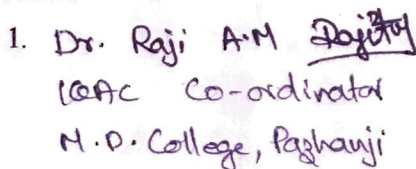 1. Dr. Raji A.M
IQAC Co-ordinator
M.D. College, Pazhanji